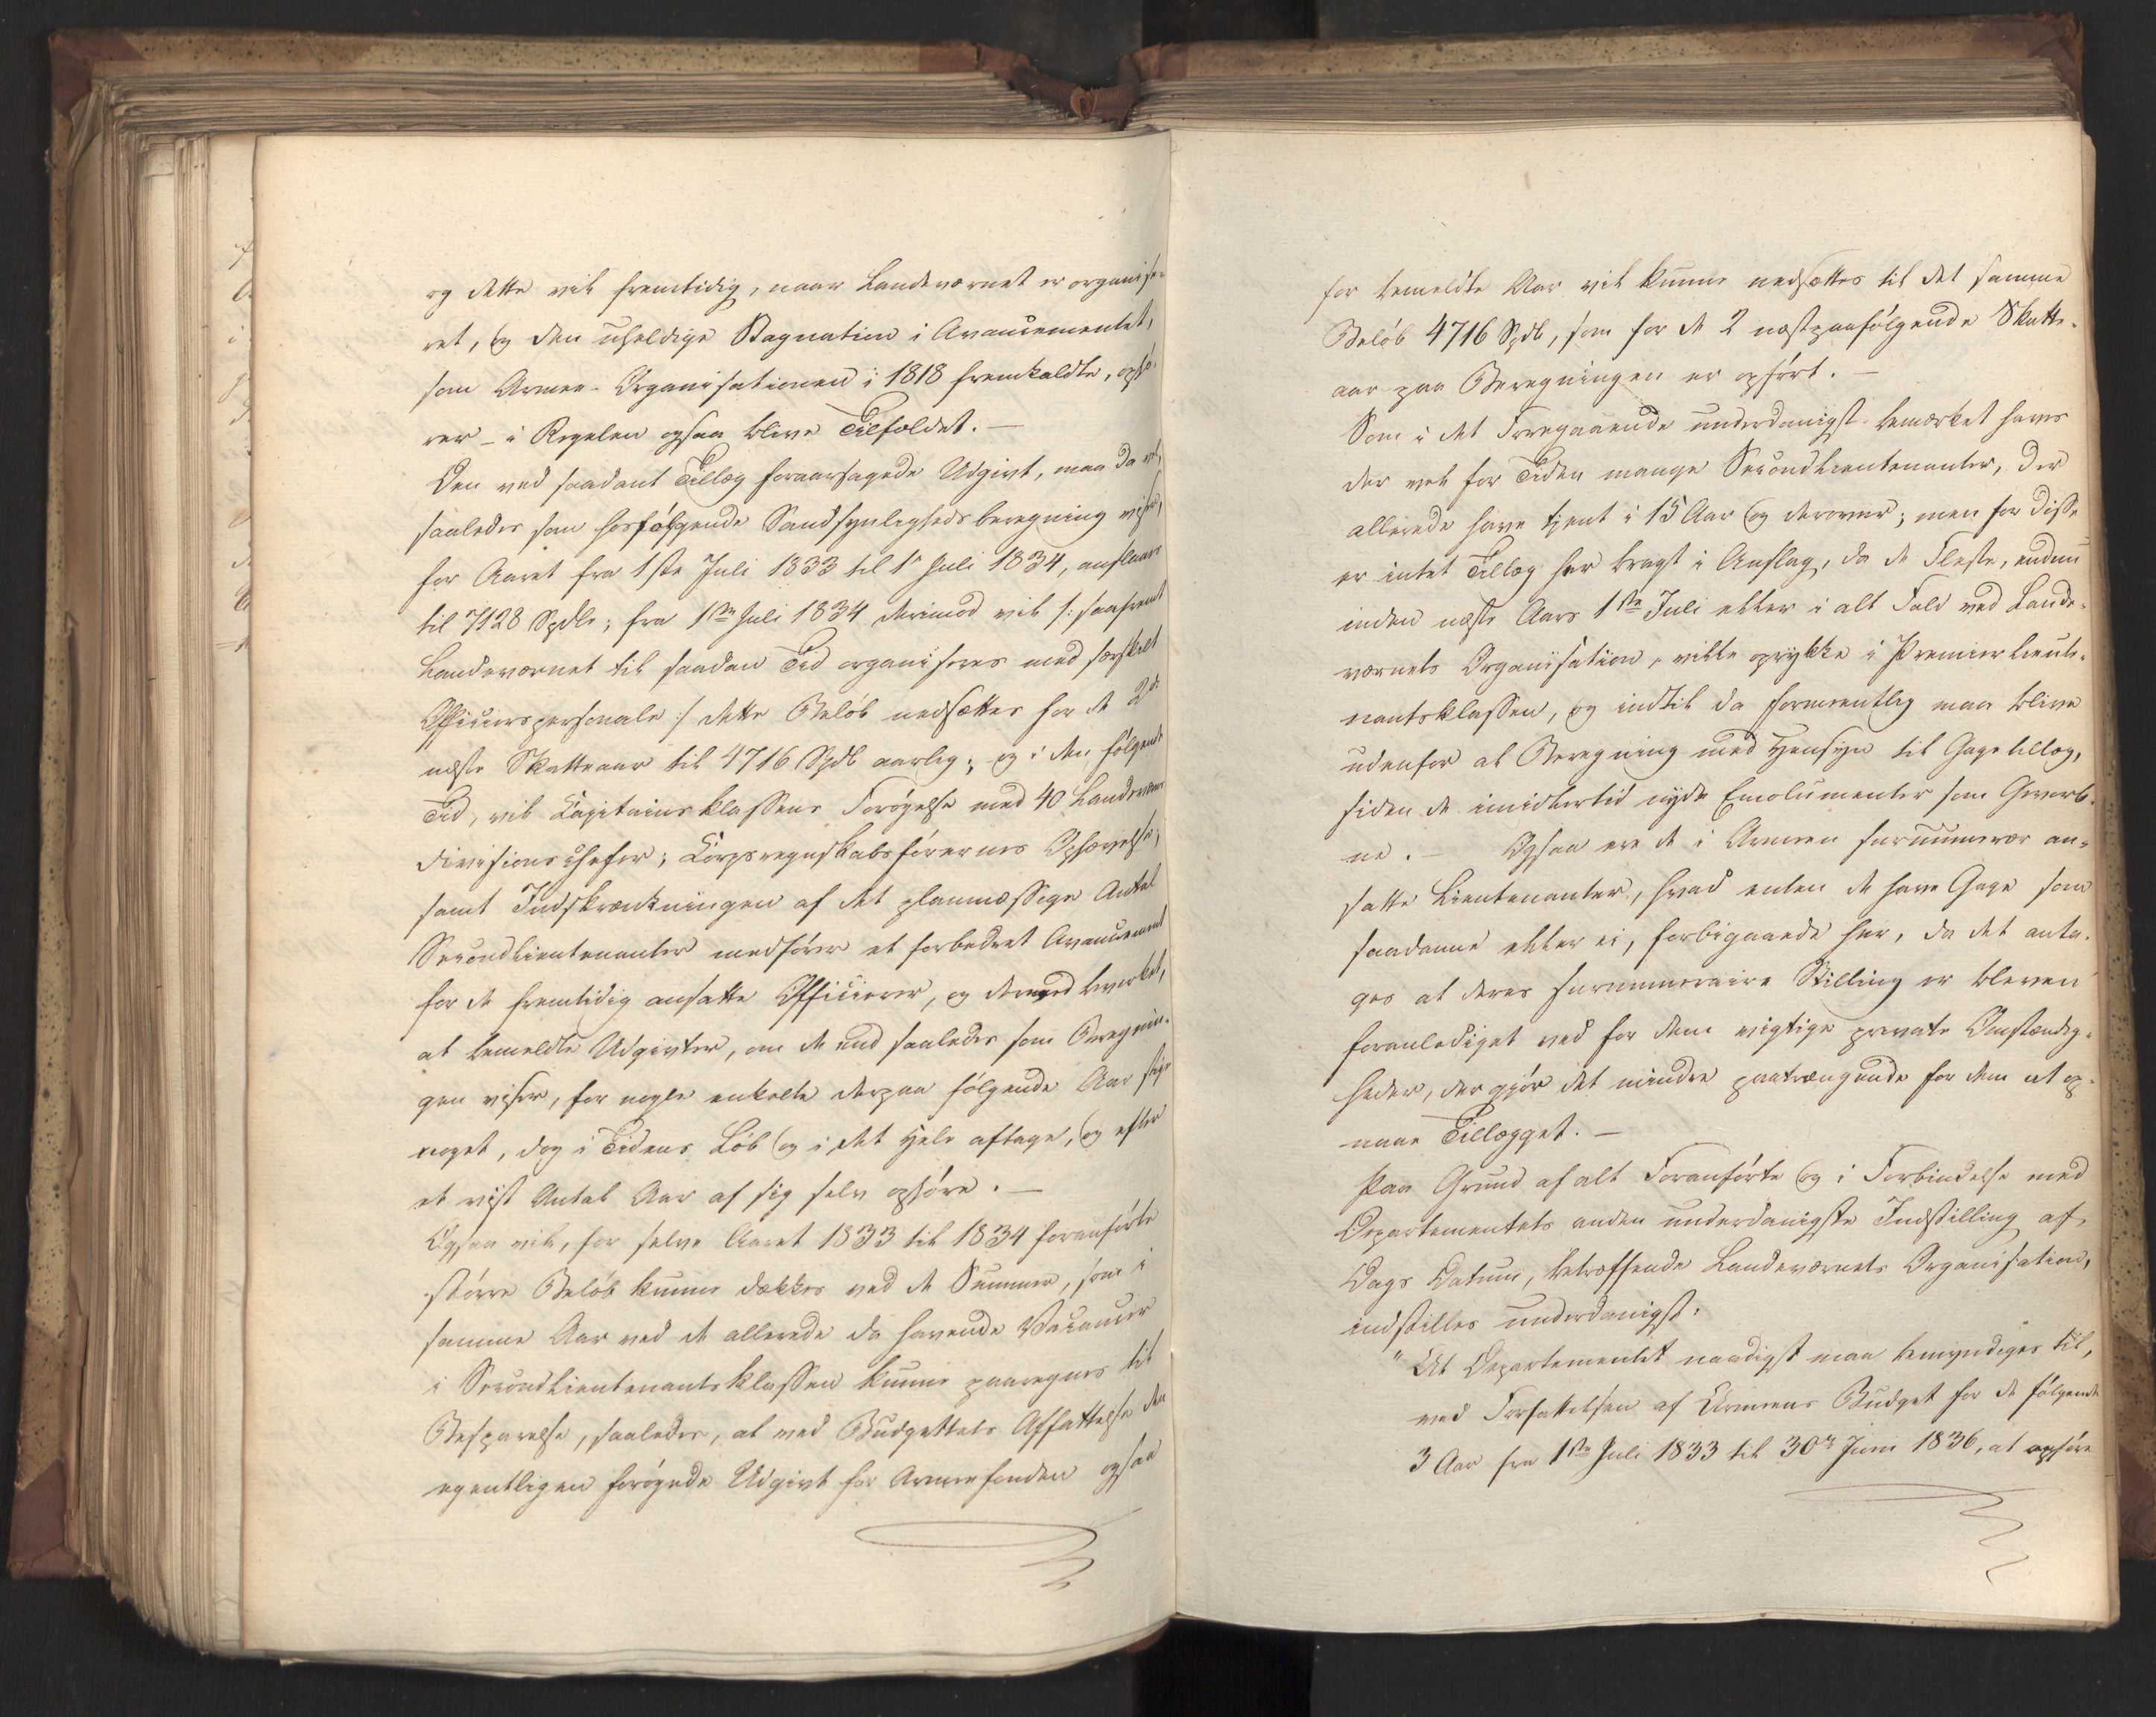 og dette vil fremtidig, naar Landeværnet er organise-
ret, og den uheldige Stagnation i Avancementet,
som Armee-Organisationen i 1818 fremkaldte, ophø-
rer – i Regelen ogsaa blive Tilfældet. –
Den ved saadant Tillæg foraarsagede Udgivt, maa da vel,
saaledes som hosfølgende Sandsynligheds beregning viser,
for Aaret fra 1ste Juli 1833 til 1e Juli 1834, anslaaes
til 7128 Spdlr; fra 1ste Juli 1834 derimod vil /: saafremt
Landeværnet til saadan Tid organiseres med særskilt
Officierspersonale :/ dette Beløb nedsættes for de 2de
næste Skatteaar til 4716 Spdl aarlig; og i den følgende
Tid, vil Capitainsklassens Forøgelse med 40 Landeværns
divisions Chefer; Corpsregnskabsførernes Ophævelse;
samt Indskrænkningen af det planmæssige Antal
Secondlieutenanter medføre et forbedret Avancement
for de fremtidig ansatte Officierer, og derved bevirket,
at bemeldte Udgivter, om de end saaledes som Beregnin-
gen viser, for nogle enkelte derpaa følgende Aar stige
noget, dog i Tidens Løb og i det Hele aftage, og efter
et vist Antal Aar af sig selv ophøre. –
Ogsaa vil, for selve Aaret 1833 til 1834 foranførte
større Beløb kunne dækkes ved de Summer, som i
samme Aar ved de allerede da havende Vacancer
i Secondlieutenantsklassen kunne paaregnes til
Besparelse, saaledes, at ved Budgettets Affattelse den
egentligen forøgede Udgivt for Armeefonden ogsaa
for bemeldte Aar vil kunne nedsættes til det samme
Beløb 4716 Spdl, som for de 2 næstpaafølgende Skatte-
aar paa Beregningen er opført. –
Som i det Foregaaende underdanigst bemærket haves
der vel for Tiden mange Secondlieutenanter, der
allerede have tjent i 15 Aar og derover; men for disse
er intet Tillæg her bragt i Anslag, da de Fleste, endnu
inden næste Aars 1ste Juli eller i alt Fald ved Lande-
værnets Organisation, ville oprykke i Premierlieute-
nantsklassen, og indtil da formeentlig maa blive
udenfor al Beregning med Hensyn til Gagetillæg,
siden de imidlertid nyde Emolumenter som Hverv-
ne. – Ogsaa ere de i Armeen surnumerær an-
satte Lieutenanter, hvad enten de have Gage som
saadanne eller ei, forbigaaede her, da det anta-
ges at deres surnumeraire Stilling er bleven
foranlediget ved for dem vigtige private Omstændig-
heder, der gjør det mindre paatrængende for dem at op-
naae Tillægget. –
Paa Grund af alt Foranførte og i Forbindelse med
Departementets anden underdanigste Indstilling af
Dags Datum, betræffende Landeværnets Organisation,
indstilles underdanigst:
"At Departementet naadigst maa bemyndiges til,
ved Forfattelsen af Armeens Budget for de følgende
3 Aar fra 1ste Juli 1833 til 30te Juni 1836, at opføre